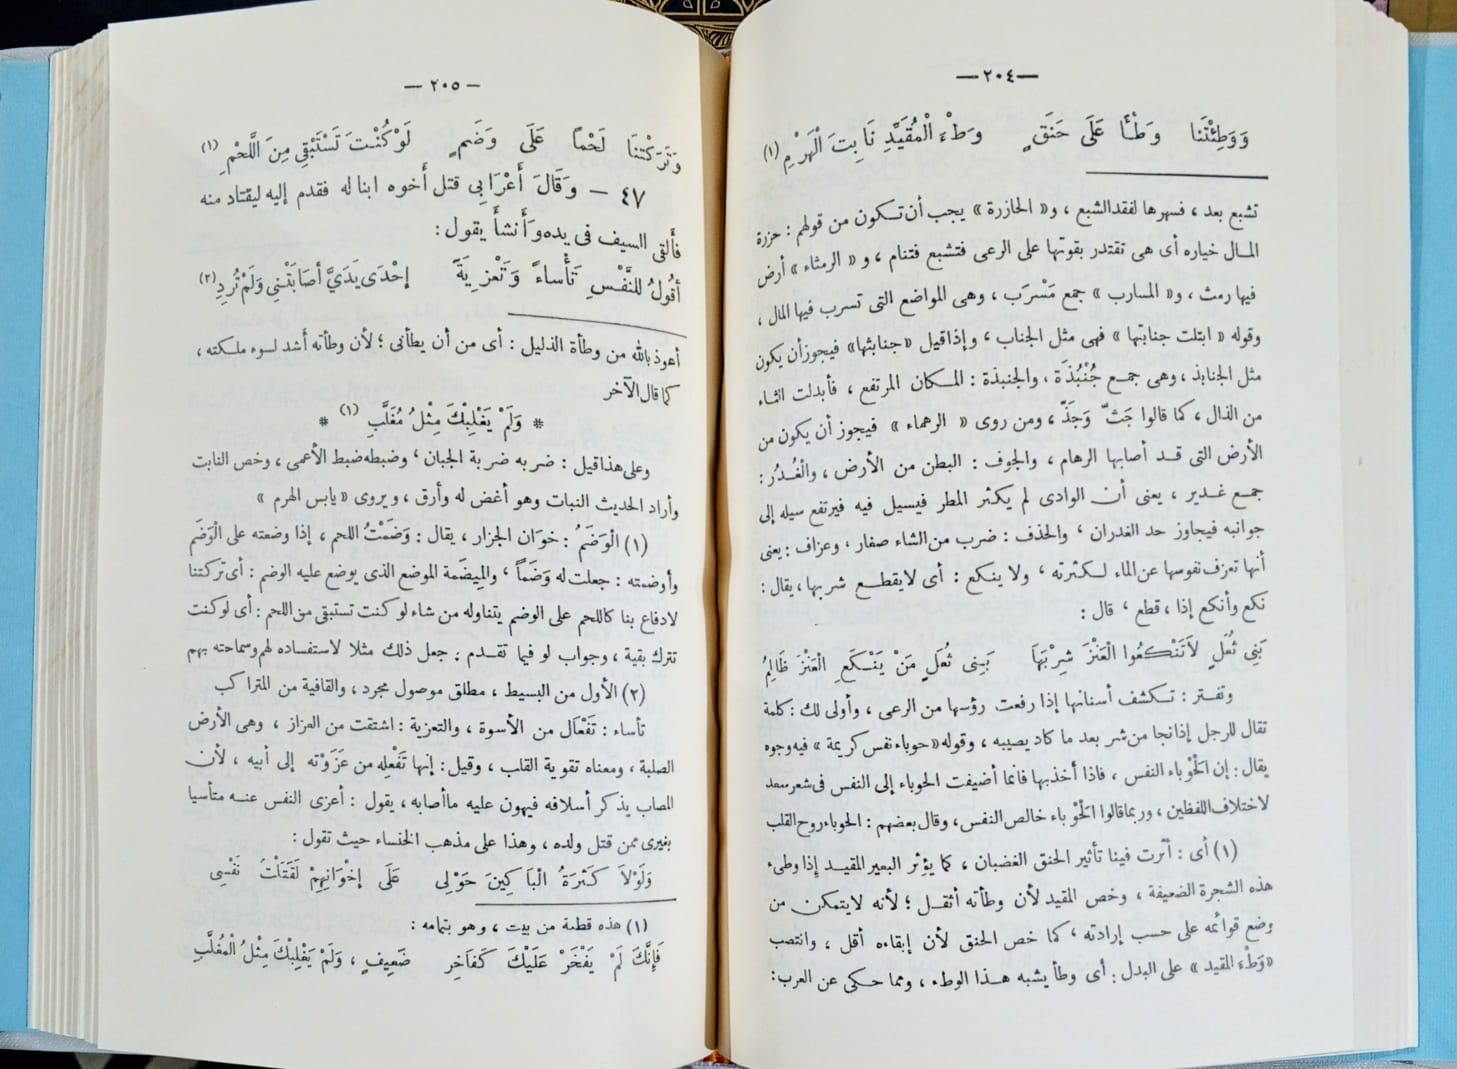 — ٢٠٤ —
وَوَطِئْتَنا وَطْأً عَلَى حَنَقٍ وَطْءَ الْمُقَيَّدِ نَابِتَ الْهَرْمِ (١)
تشبع بعد ، فسهرها لفقد الشبع ، و« الحازرة » يجب أن تكون من قولهم : حزرة
المال خياره أى هى تقتدر بقوتها على الرعى فتشبع فتنام ، و « الرمثاء » أرض
فيها رمث ، و« المسارب » جمع مَسْرَب ، وهى المواضع التى تسرب فيها المال ،
وقوله « ابتلت جنابتها » فهى مثل الجناب ، وإذا قيل « جنابثها » فيجوز أن يكون
مثل الجنابذ ، وهى جمع جُنْبُذَة ، والجنبذة : المكان المرتفع ، فأبدلت الثاء
من الذال ، كما قالوا جَثّ وَجَذّ ، ومن روى « الرهماء » فيجوز أن يكون من
الأرض التى قد أصابها الرهام ، والجوف : البطن من الأرض ، والْغُدُر :
جمع غدير ، يعنى أن الوادى لم يكثر المطر فيسيل فيه فيرتفع سيله إلى
جوانبه فيجاوز حد الغدران ، والحذف : ضرب من الشاء صغار ، وعزاف : يعنى
أنها تعزف نفوسها عن الماء لكثرته ، ولا ينكع : أى لا يقطع شربها ، يقال :
نكع وأنكع إذا ، قطع ، قال :
بَنِى ثُعَلٍ لاَ تَنْكَعُوا الْعَنْزَ شِرْبَهَا بَنِى ثُعَلٍ مَنْ يَنْكَعِ الْعَنْزَ ظَالِمُ
وتفتر : تكشف أسنانها إذا رفعت رؤسها من الرعى ، وأولى لك : كلمة
تقال للرجل إذا نجا من شر بعد ما كاد يصيبه ، وقوله « حوباء نفس كريمة » فيه وجوه
يقال : إن الْحَوْباء النفس ، فاذا أخذ بها فانما أضيفت الحوباء إلى النفس فى شعر سعد
لاختلاف اللفظين ، وربما قالوا الْحَوْباء خالص النفس ، وقال بعضهم : الحوباء روح القلب
(١) أى : أثرت فينا تأثير الحنق الغضبان ، كما يؤثر البعير المقيد إذا وطىء
هذه الشجرة الضعيفة ، وخص المقيد لأن وطأته أثقل ؛ لأنه لا يتمكن من
وضع قوائمه على حسب إرادته ، كما خص الحنق لأن إبقاءه أقل ، وانتصب
« وَطْءَ المقيد » على البدل : أى وطأ يشبه هذا الوطء ، ومما حكى عن العرب :
— ٢٠٥ —
وَتَرَكْتَنَا لَحْمًا عَلَى وَضَمٍ لَوْ كُنْتَ تَسْتَبْقِى مِنَ اللَّحْمِ (١)
٤٧ — وَقَالَ أَعْرَابى قتل أخوه ابنا له فقدم إليه ليقتاد منه
فألقى السيف فى يده وَأَنشأَ يقول :
أقُولُ للنَّفْسِ تَأْساءً وَتَعْزِيَةً إحْدَى يَدَيَّ أصَابَتْنِى وَلَمْ تُرِدِ (٢)
أعوذ بالله من وطأة الذليل : أى من أن يطأنى ؛ لأن وطأته أشد لسوء ملكته ،
كما قال الآخر
* وَلَمْ يَغْلِبْكَ مِثْلُ مُغَلَّبِ (١) *
وعلى هذا قيل : ضربه ضربة الجبان ، وضبطه ضبط الأعمى ، وخص النابت
وأراد الحديث النبات وهو أغض له وأرق ، ويروى « يابس الهرم »
(١) الْوَضَمُ : خوَان الجزار ، يقال : وَضَمْتُ اللحم ، إذا وضعته على الْوَضَم
وأوضمته : جعلت له وَضَماً ، والمِيضَمة الموضع الذى يوضع عليه الوضم : أى تركتنا
لا دفاع بنا كاللحم على الوضم يتناوله من شاء لو كنت تستبقى من اللحم : أى لو كنت
تترك بقية ، وجواب لو فيما تقدم : جعل ذلك مثلا لاستفساده لهم وسماحته بهم
(٢) الأول من البسيط ، مطلق موصول مجرد ، والقافية من المتراكب
تأساء : تَفْعَال من الأسوة ، والتعزية : اشتقت من العزاز ، وهى الأرض
الصلبة ، ومعناه تقوية القلب ، وقيل : إنها تَفْعِله من عَزَوْته إلى أبيه ، لأن
المصاب يذكر أسلافه فيهون عليه ما أصابه ، يقول : أعزى النفس عنه متأسيا
بغيرى ممن قتل ولده ، وهذا على مذهب الخنساء حيث تقول :
وَلَوْلاَ كَثْرَةُ الْبَاكِينَ حَوْلِى عَلَى إخْوَانِهِمْ لَقَتَلْتَ نَفْسِى
(١) هذه قطعة من بيت ، وهو بتمامه :
فَإنَّكَ لَمْ يَفْخَرْ عَلَيْكَ كَفَاخِرِ ضَعِيفٍ ، وَلَمْ يَغْلِبْكَ مِثْلُ الْمُغَلَّبِ